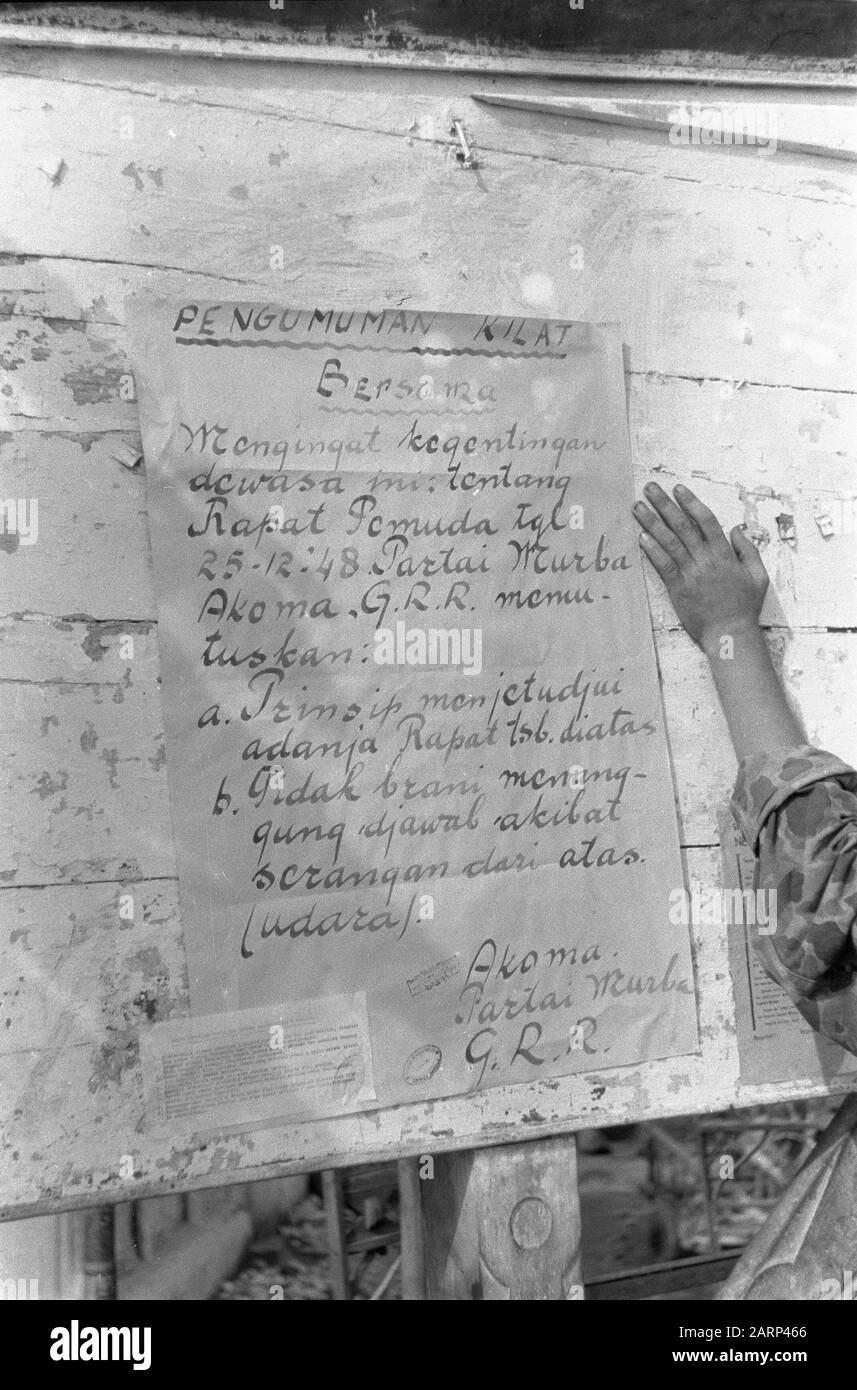 PENGUMUMAN KILAT
Bersama
Mengingat kegentingan
dewasa ini: tentang
Rapat Pemuda tgl
25-12-'48. Partai Murba
Akoma, G.R.R. memu-
tuskan:
a. Prinsip menjetudjui
adanja Rapat tsb. diatas
b. Tidak brani menang-
gung djawab akibat
serangan dari atas.
(udara).
Akoma.
Partai Murba
G.R.R.
alamy
Image ID: 2ARP466
www.alamy.com